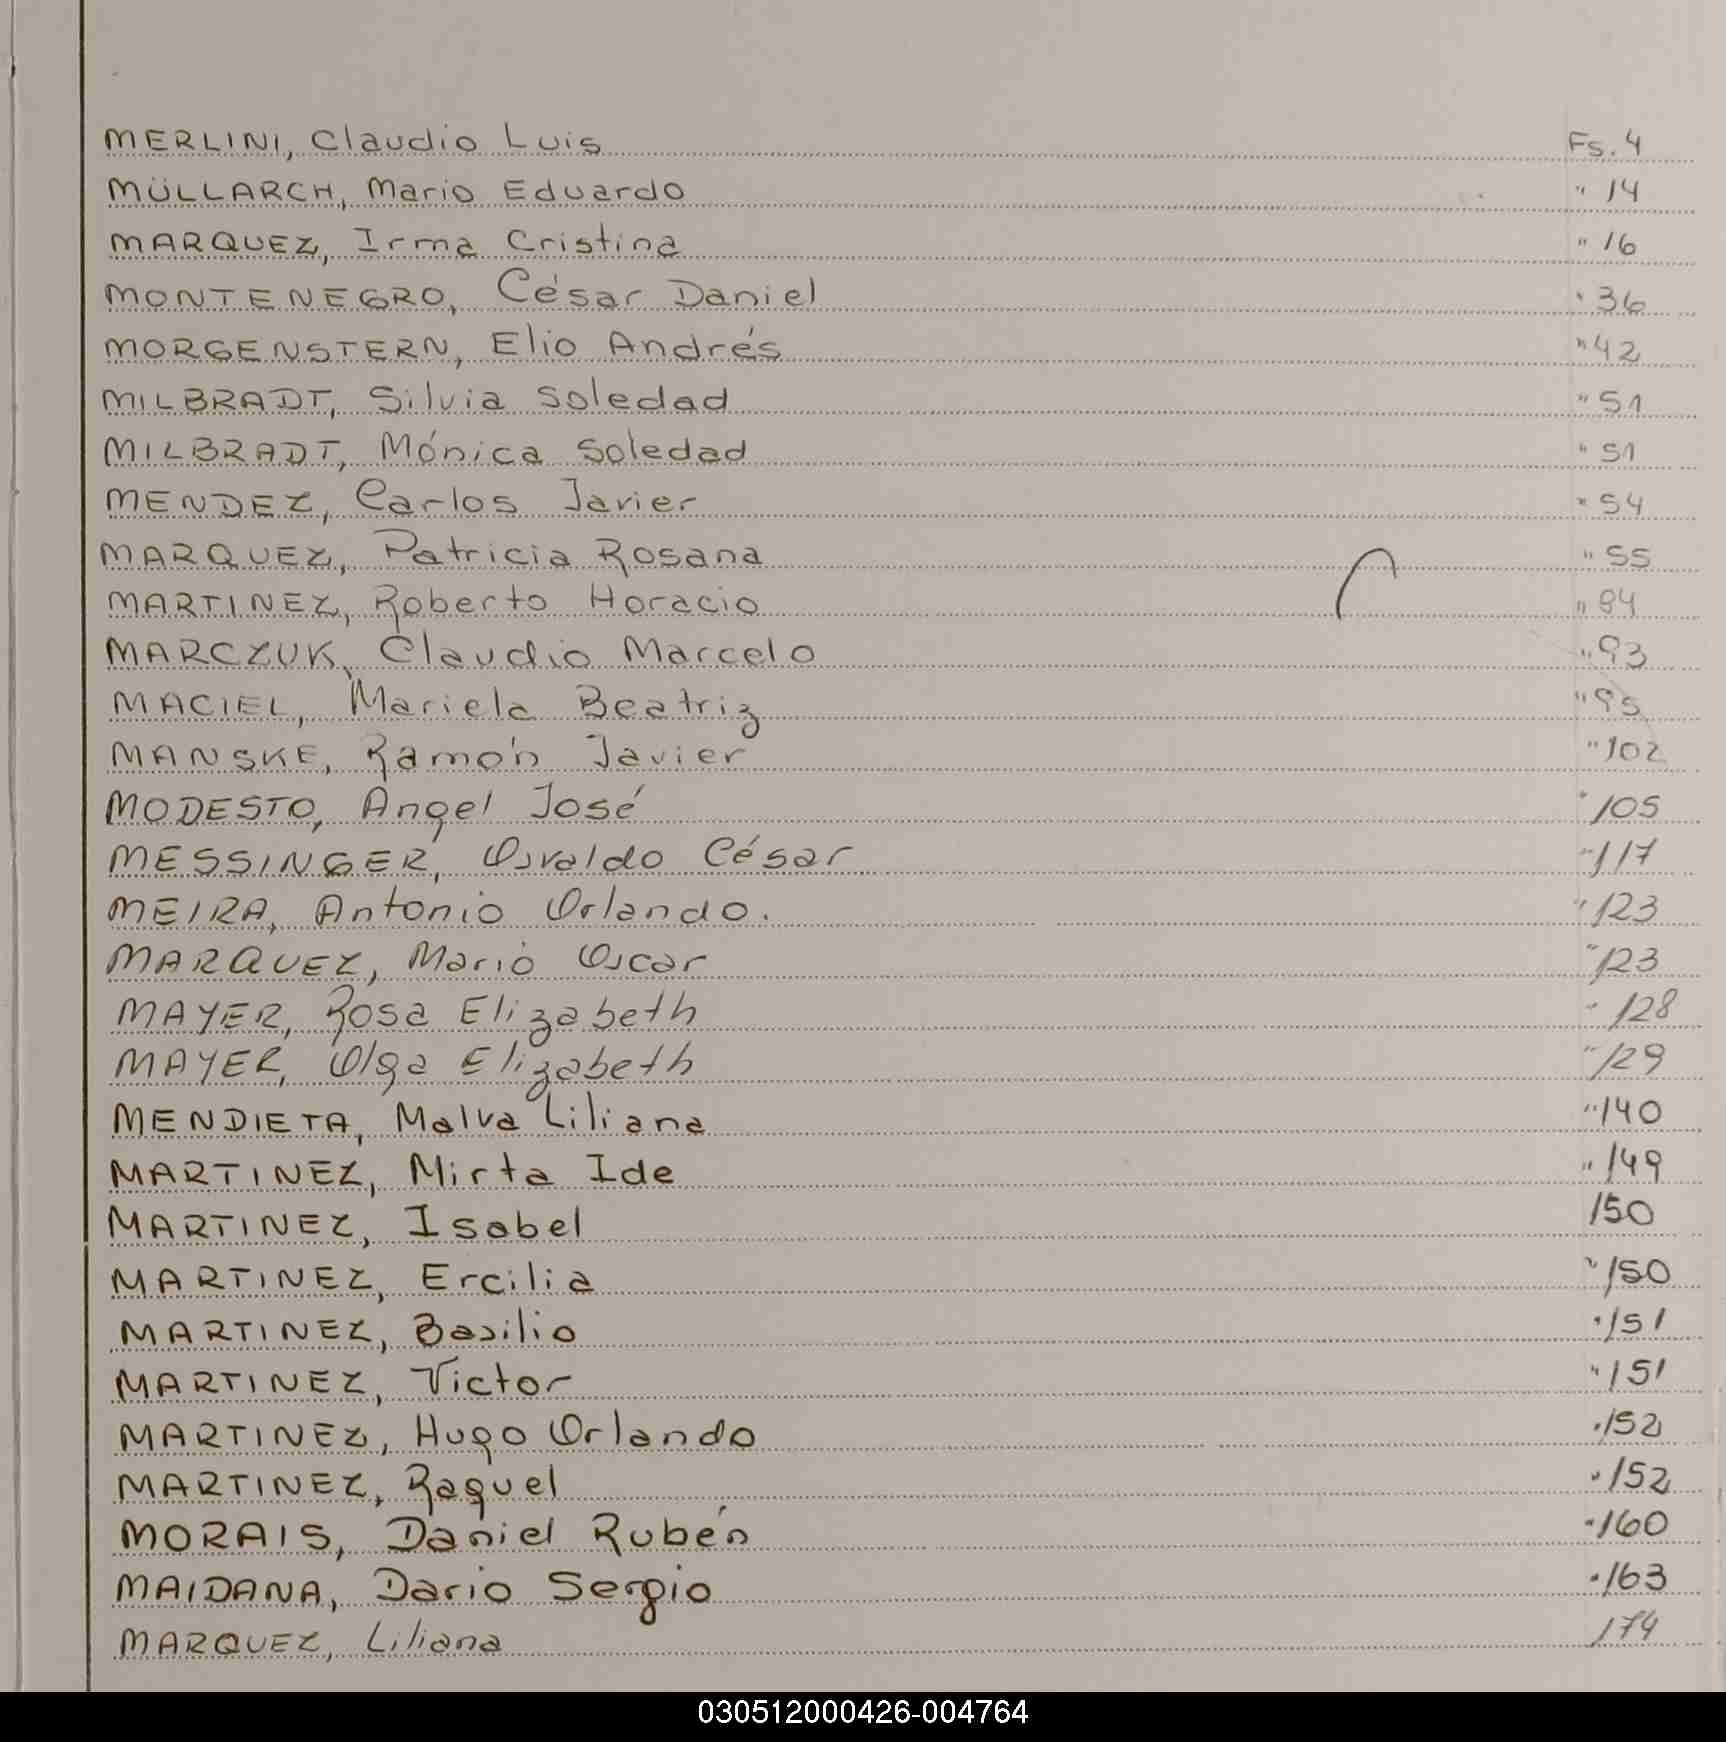 MERLINI, Claudio Luis Fs. 4
MÜLLARCH, Mario Eduardo " 14
MARQUEZ, Irma Cristina " 16
MONTENEGRO, César Daniel " 36
MORGENSTERN, Elio Andrés " 42
MILBRADT, Silvia Soledad " 51
MILBRADT, Mónica Soledad " 51
MENDEZ, Carlos Javier " 54
MARQUEZ, Patricia Rosana " 55
MARTINEZ, Roberto Horacio " 84
MARCZUK, Claudio Marcelo " 93
MACIEL, Mariela Beatriz " 95
MANSKE, Ramón Javier " 102
MODESTO, Angel José " 105
MESSINGER, Osvaldo César " 117
MEIRA, Antonio Orlando. " 123
MARQUEZ, Mario Oscar " 123
MAYER, Rosa Elizabeth " 128
MAYER, Olga Elizabeth " 129
MENDIETA, Malva Liliana " 140
MARTINEZ, Mirta Ide " 149
MARTINEZ, Isabel 150
MARTINEZ, Ercilia " 150
MARTINEZ, Basilio " 151
MARTINEZ, Victor " 151
MARTINEZ, Hugo Orlando " 152
MARTINEZ, Raquel " 152
MORAIS, Daniel Rubén " 160
MAIDANA, Dario Sergio " 163
MARQUEZ, Liliana 174
030512000426-004764